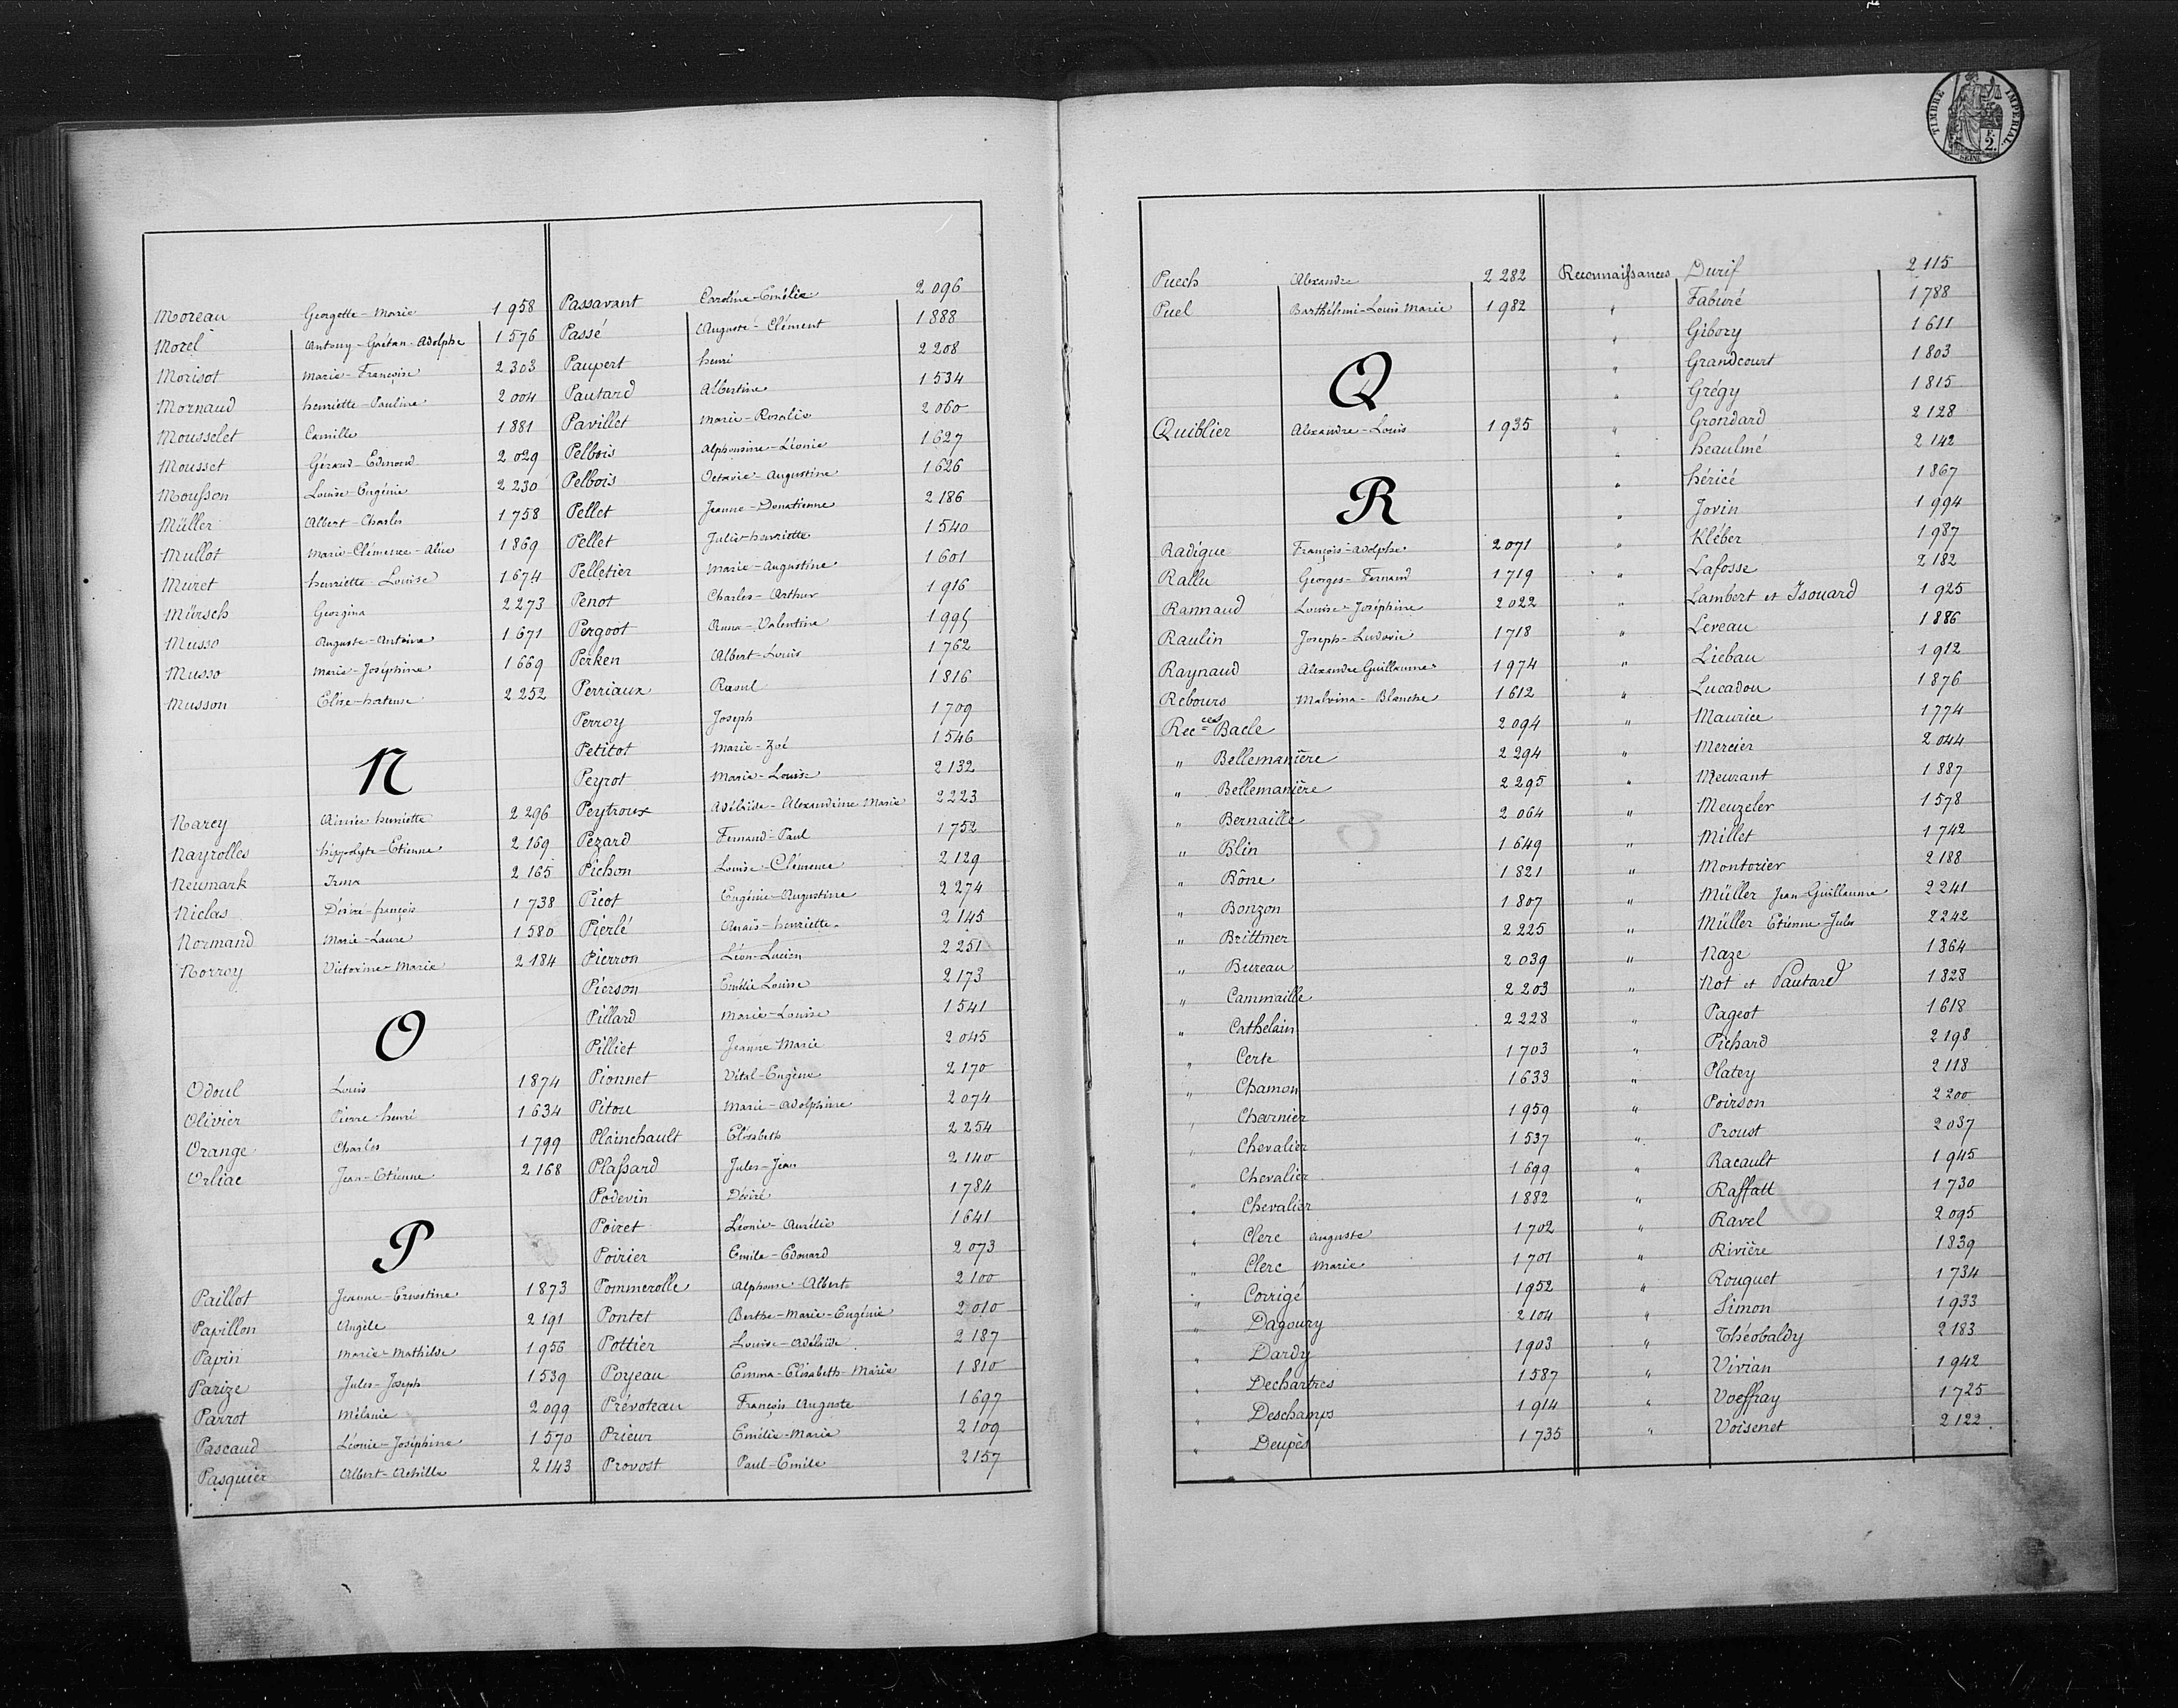 Moreau Georgette-Marie 1958
Morel Antony-Gaétan-Adolphe 1576
Morisot Marie-Françoise 2303
Mornaud henriette-Pauline 2004
Mousselet Camille 1881
Mousset Géraud-Edmond 2029
Mousson Louise-Eugénie 2230
Müller Albert-Charles 1758
Mullot Marie-Clémence-Alice 1869
Muret henriette-Louise 1674
Mürsch Georgina 2273
Musso Auguste-Antoine 1671
Musso Marie-Joséphine 1669
Musson Elise-hortense 2252
N
Narcy Aimée henriette 2296
Nayrolles hippolyte-Etienne 2169
Neumark Irma 2165
Niclas Désiré-françois 1738
Normand Marie-Laure 1580
Norroy Victorine-Marie 2184
O
Odoul Louis 1874
Olivier Pierre-henri 1634
Orange Charles 1799
Orliac Jean-Etienne 2168
P
Paillot Jeanne-Ernestine 1873
Papillon Angèle 2191
Papin Marie-Mathilde 1956
Parize Jules-Joseph 1539
Parrot Mélanie 2099
Pascaud Léonie-Joséphine 1570
Pasquier Albert-Achille 2143
Passavant Caroline-Emélie 2096
Passé Auguste-Clément 1888
Paupert henri 2208
Pautard Albertine 1534
Pavillet Marie-Rosalie 2060
Pelbois Alphonsine-Léonie 1627
Pelbois Octavie-Augustine 1626
Pellet Jeanne-Donatienne 2186
Pellet Julie-henriette 1540
Pelletier Marie-Augustine 1601
Penot Charles-Arthur 1916
Pergoot Anna-Valentine 1995
Perken Albert-Louis 1762
Perriaux Raoul 1816
Perroy Joseph 1709
Petitot Marie-Zoé 1546
Peyrot Marie-Louise 2132
Peytroux Adélaïde-Alexandrine Marie 2223
Pezard Fernand-Paul 1752
Pichon Louise-Clémence 2129
Picot Eugénie-Augustine 2274
Pierlé Anaïs-henriette 2145
Pierron Léon-Lucien 2251
Pierson Emélie Louise 2173
Pillard Marie-Louise 1541
Pilliet Jeanne Marie 2045
Pionnet Vital-Eugène 2170
Pitou Marie-Adolphine 2074
Plainchault Elisabeth 2254
Plassard Jules-Jean 2140
Podevin Désiré 1784
Poiret Léonie-Aurélie 1641
Poirier Emile-Edouard 2073
Pommerolle Alphonse-Albert 2100
Pontet Berthe-Marie-Eugénie 2010
Pottier Louise-Adélaïde 2187
Poyeau Emma-Elisabeth-Marie 1810
Prévoteau François Auguste 1697
Prieur Emélie-Marie 2109
Provost Paul-Emile 2157
TIMBRE IMPERIAL
2.
SEINE
Puech Alexandre 2282
Puel Barthélemi-Louis Marie 1982
Q
Quiblier Alexandre-Louis 1935
R
Radigue François-Adolphe 2071
Rallu Georges-Fernand 1719
Rannaud Louise-Joséphine 2022
Raulin Joseph-Ludovic 1718
Raynaud Alexandre Guillaume 1974
Rebours Malvina-Blanche 1612
Rec ces Bacle 2094
" Bellemanière 2294
" Bellemanière 2295
" Bernaille 2064
" Blin 1649
" Bône 1821
" Bonzon 1807
" Brittmer 2225
" Bureau 2039
" Cammaille 2203
" Cathelain 2228
" Certe 1703
" Chamon 1633
" Charnier 1959
" Chevalier 1537
" Chevalier 1699
" Chevalier 1882
" Clerc auguste 1702
" Clerc Marie 1701
" Corrigé 1952
" Dagoury 2104
" Dardy 1903
" Dechartres 1587
" Deschamps 1914
" Deupès 1735
Reconnaissances Durif 2115
" Faburé 1788
" Gibory 1611
" Grandcourt 1803
" Grégy 1815
" Grondard 2128
" heaulmé 2142
" héricé 1867
" Jovin 1994
" Kléber 1987
" Lafosse 2182
" Lambert et Isouard 1925
" Leveau 1886
" Liebau 1912
" Lucadou 1876
" Maurice 1774
" Mercier 2044
" Meurant 1887
" Meuzeler 1578
" Millet 1742
" Montorier 2188
" Müller Jean Guillaume 2241
" Müller Etienne Jules 2242
" Naze 1864
" Not et Pautard 1828
" Pageot 1618
" Pichard 2198
" Platey 2118
" Poirson 2200
" Proust 2037
" Racault 1945
" Raffatt 1730
" Ravel 2095
" Rivière 1839
" Rouquet 1734
" Simon 1933
" Théobaldy 2183
" Vivian 1942
" Voeffray 1725
" Voisenet 2122